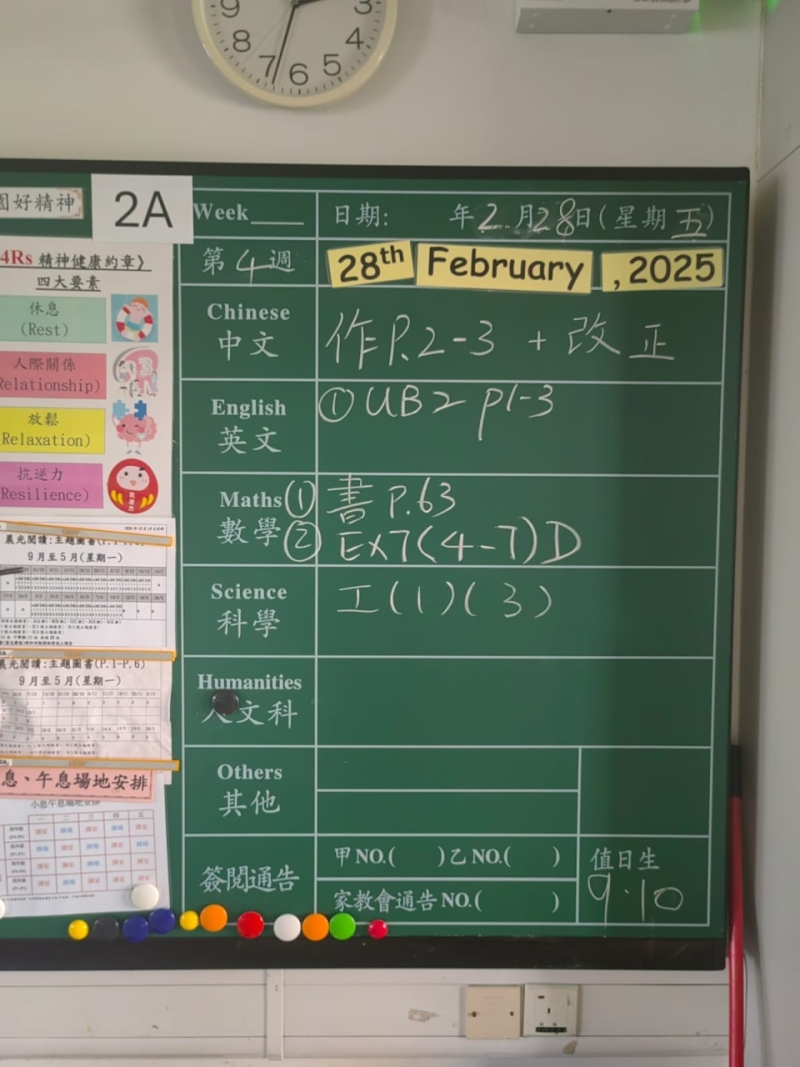 9
3
8
4
7
6
5
園好精神
2A
Week____
日期: 年2月28日(星期五)
4Rs 精神健康約章》
四大要素
第4週
28th February, 2025
休息
(Rest)
人際關係
Relationship)
放鬆
Relaxation)
抗逆力
Resilience)
Chinese
中文
作P.2-3 + 改正
English
英文
①UB2 p1-3
Maths
數學
①書 P.63
②Ex7(4-7)D
Science
科學
工(1)(3)
Humanities
人文科
Others
其他
簽閱通告
甲NO.( )乙NO.( )
家教會通告NO.( )
值日生
9.10
晨光閱讀:主題圖書(P.1-P.6)
9月至5月(星期一)
晨光閱讀:主題圖書(P.1-P.6)
9月至5月(星期一)
息、午息場地安排
小息午息場地安排
一 二 三 四 五